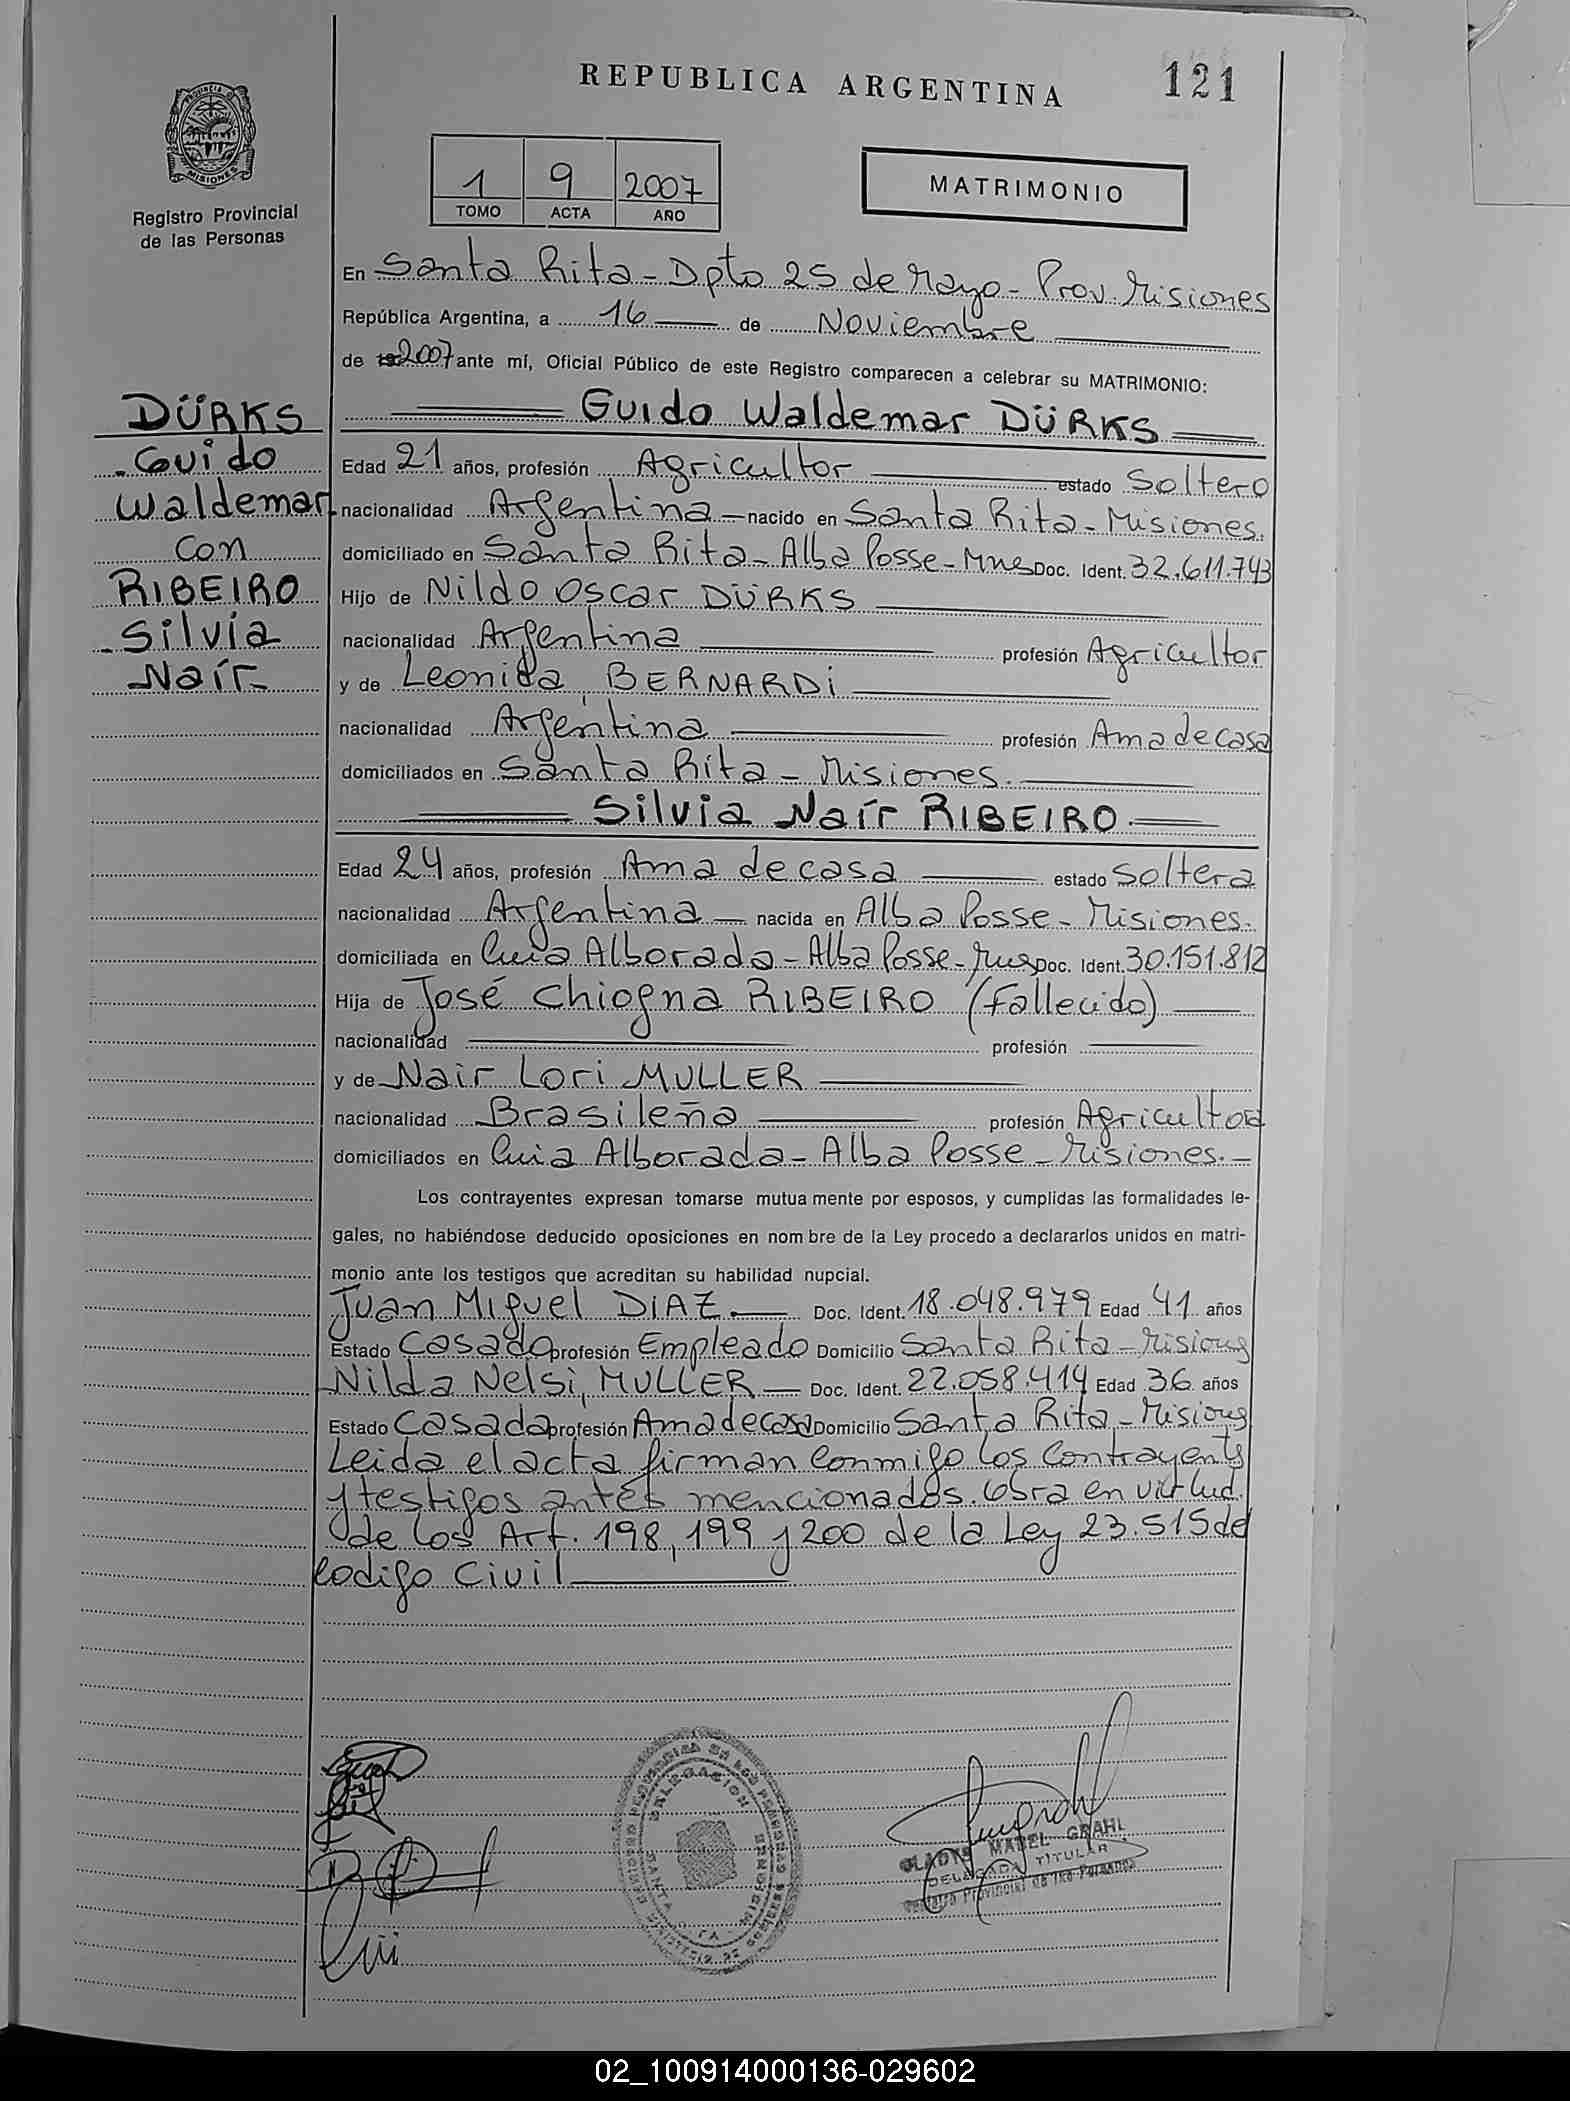 REPUBLICA ARGENTINA
121
PROVINCIA DE
MISIONES
Registro Provincial
de las Personas
1 9 2007
TOMO ACTA AÑO
MATRIMONIO
En Santa Rita - Dpto 25 de Mayo - Prov. Misiones
República Argentina, a 16 de Noviembre
de 2007 ante mí, Oficial Público de este Registro comparecen a celebrar su MATRIMONIO:
DÜRKS
Guido
Waldemar
con
RIBEIRO
Silvia
Naír
Guido Waldemar DÜRKS
Edad 21 años, profesión Agricultor estado Soltero
nacionalidad Argentina nacido en Santa Rita - Misiones.
domiciliado en Santa Rita - Alba Posse - Mnes Doc. Ident. 32.611.743
Hijo de Nildo Oscar DÜRKS
nacionalidad Argentina profesión Agricultor
y de Leonida, BERNARDi
nacionalidad Argentina profesión Ama de casa
domiciliados en Santa Rita - Misiones.
Silvia Naír RIBEIRO
Edad 24 años, profesión Ama de casa estado Soltera
nacionalidad Argentina nacida en Alba Posse - Misiones.
domiciliada en Cnia Alborada - Alba Posse - Mnes Doc. Ident. 30.151.812
Hija de José Chiogna RIBEIRO (Fallecido)
nacionalidad profesión
y de Nair Lori MULLER
nacionalidad Brasileña profesión Agricultora
domiciliados en Cnia Alborada - Alba Posse - Misiones. -
Los contrayentes expresan tomarse mutua mente por esposos, y cumplidas las formalidades le-
gales, no habiéndose deducido oposiciones en nom bre de la Ley procedo a declararlos unidos en matri-
monio ante los testigos que acreditan su habilidad nupcial.
Juan Miguel DIAZ Doc. Ident. 18.048.979 Edad 41 años
Estado Casado profesión Empleado Domicilio Santa Rita - Misiones
Nilda Nelsi, MULLER Doc. Ident. 22.058.414 Edad 36 años
Estado Casada profesión Ama de casa Domicilio Santa Rita - Misiones
Leida el acta firman conmigo los contrayentes
y testigos antes mencionados. Obra en virtud
de los Art. 198, 199 y 200 de la Ley 23.515 del
Codigo Civil
DELEGACION
SANTA RITA
MISIONES
GLADYS MABEL GRAHL
DELEGADA TITULAR
Registro Provincial de las Personas
02_100914000136-029602